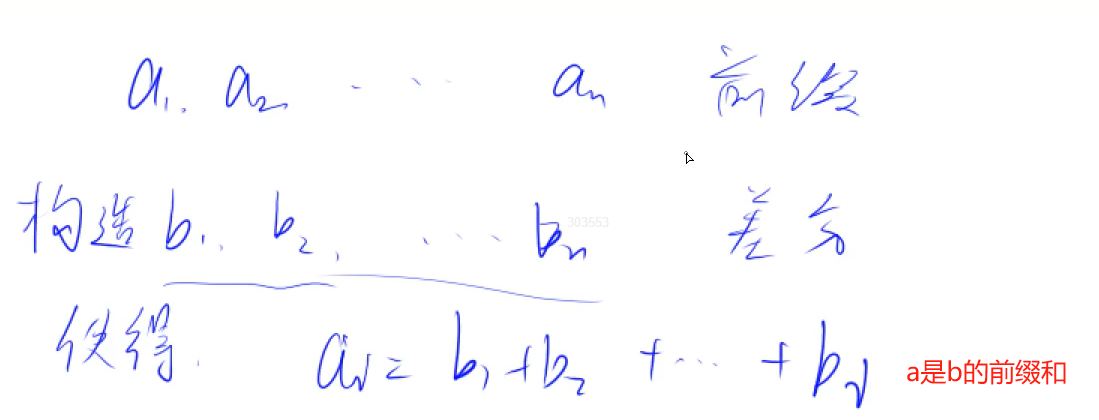 a₁, a₂ ..... aₙ 前缀
构造 b₁, b₂, ..... bₙ 差分
303553
使得. aᵢ = b₁ + b₂ + ... + bᵢ a是b的前缀和